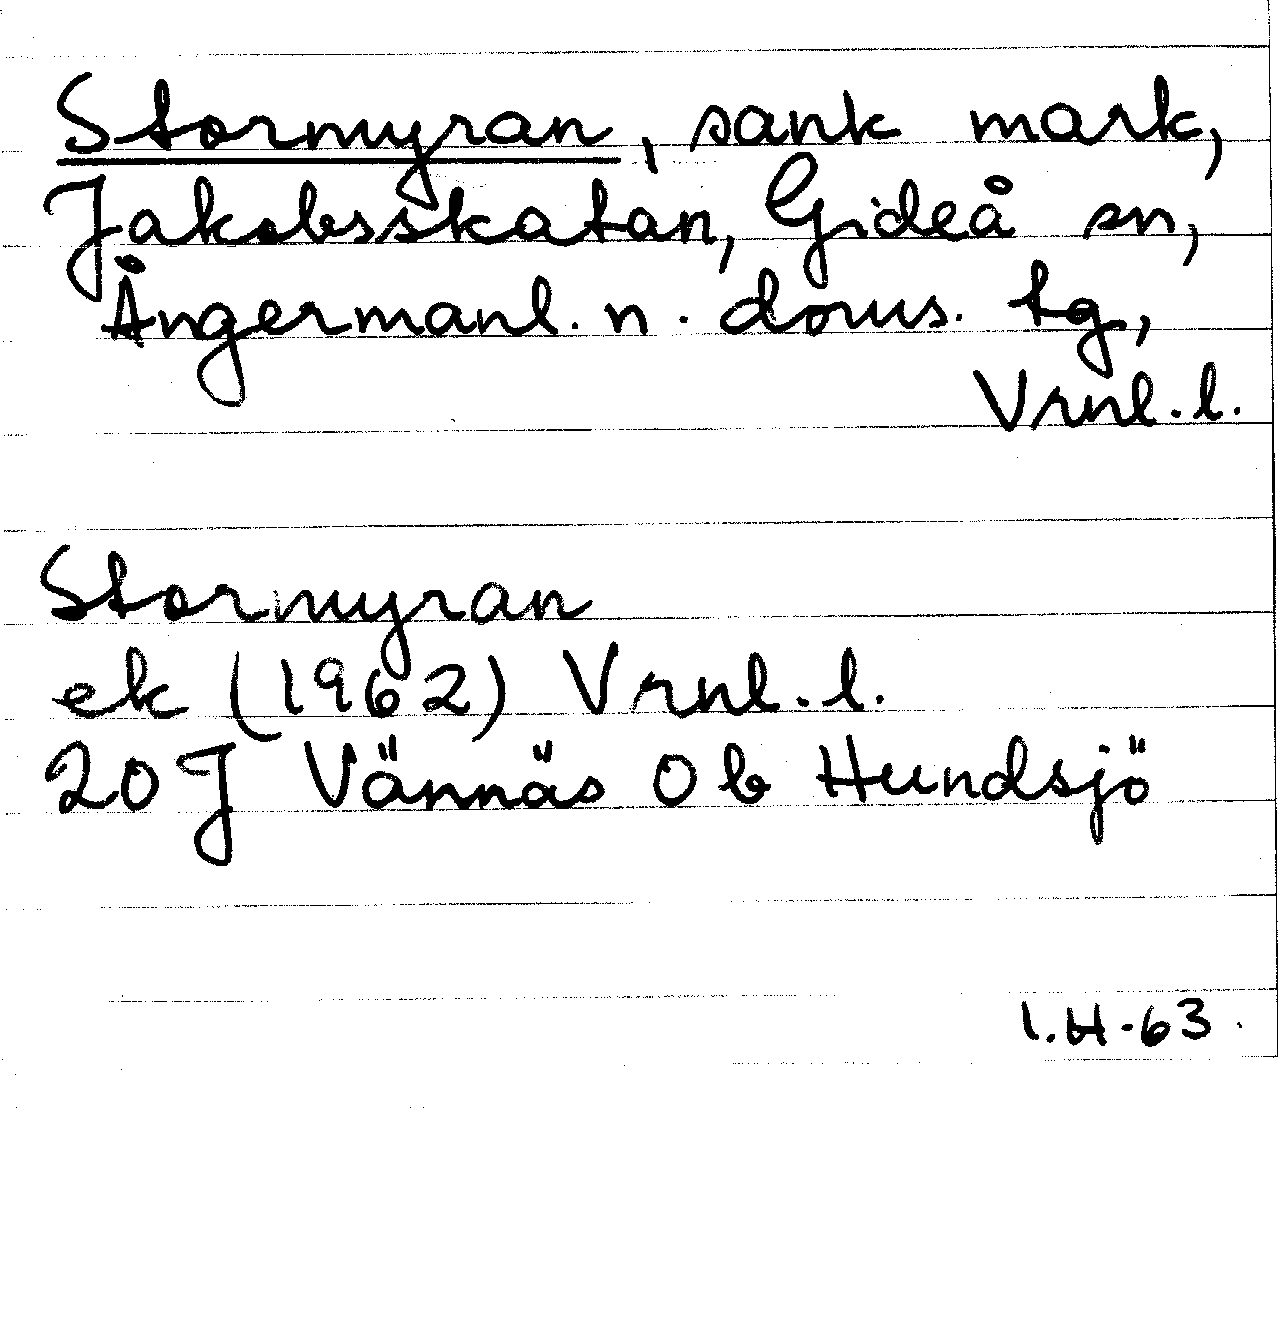 Stormyran, sank mark,
Jakobsskatan, Gideå sn,
Ångermanl. n. doms. tg,
Vrnl. l.
Stormyran
ek (1962) Vrnl. l.
20 J Vännäs 0 b Hundsjö
I.H-63.